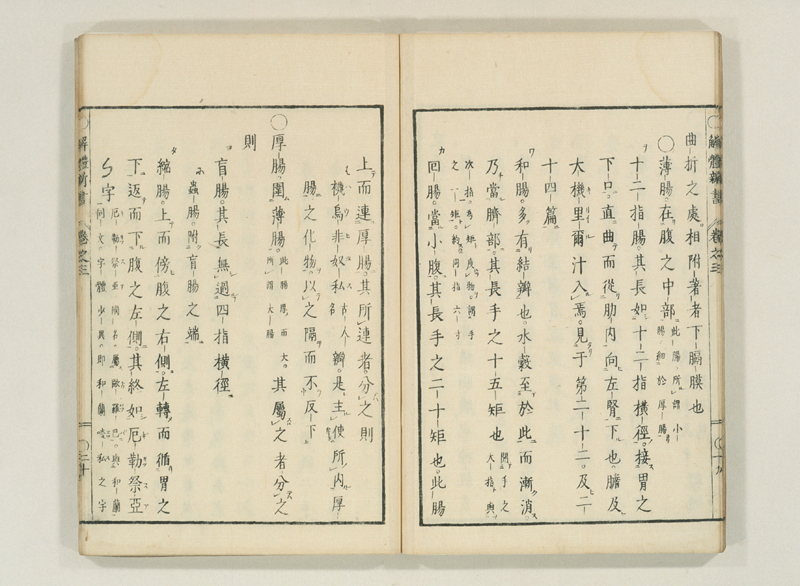 曲折之處相附著者下膈膜也
○薄腸在腹之中部此腸所謂小腸細於厚腸
十二指腸其長如十二指橫徑接胃之
下口直曲而從肋內向左腎下也膽及
大機里爾汁入焉見于第二十二及二
十四篇
和腸多有結瓣也水穀至於此而漸消
乃當臍部其長手之十五矩也
回腸當小腹其長手之二十矩也此腸
解體新書 卷之三 十九
上而連厚腸其所連者分之則
機烏非奴私古人名瓣是主使所內厚
腸之化物以之隔而不反下
○厚腸圍薄腸此腸厚而大所謂大腸其屬之者分之
則
盲腸其長無過四指橫徑
蟲腸附盲腸之端
縮腸上而傍腹之右側左轉而循胃之
下返而下腹之左側其終如厄勒祭亞
解體新書 卷之三 二十